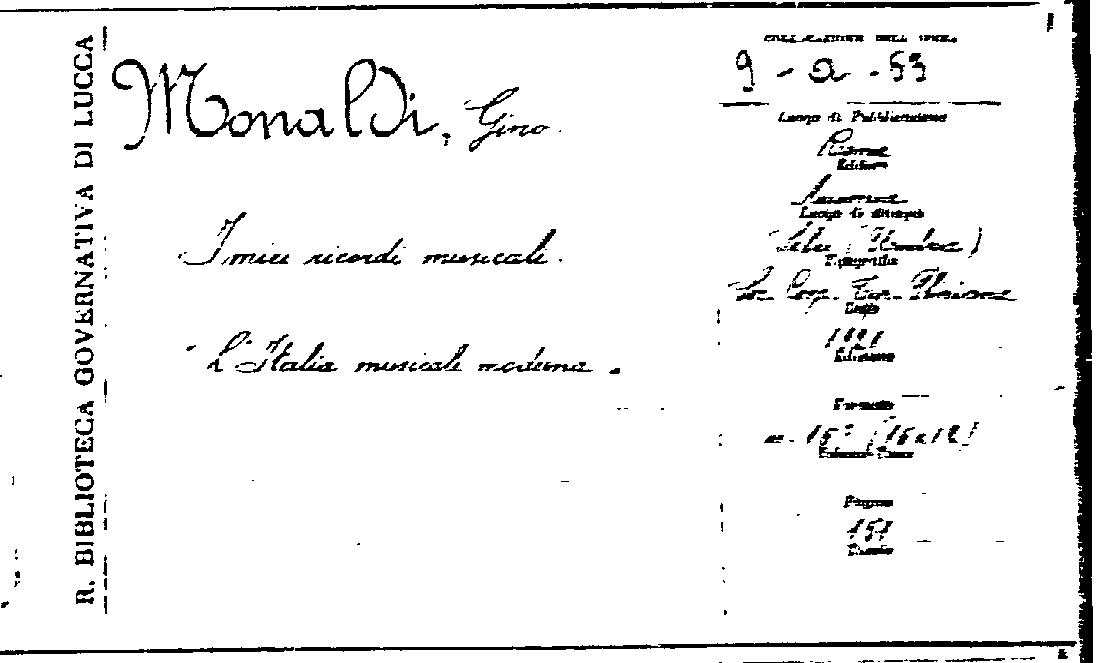 R. BIBLIOTECA GOVERNATIVA DI LUCCA
Monaldi, Gino.
I miei ricordi musicali.
L'Italia musicale moderna.
COLLOCAZIONE DELL'OPERA
9 - a - 53
Luogo di Pubblicazione
Roma
Editore
Luogo di stampa
Tipografia
Soc. Coop. Tip.
Data
1921
Edizione
Formato
in-16° (16x12)
Pagine
151